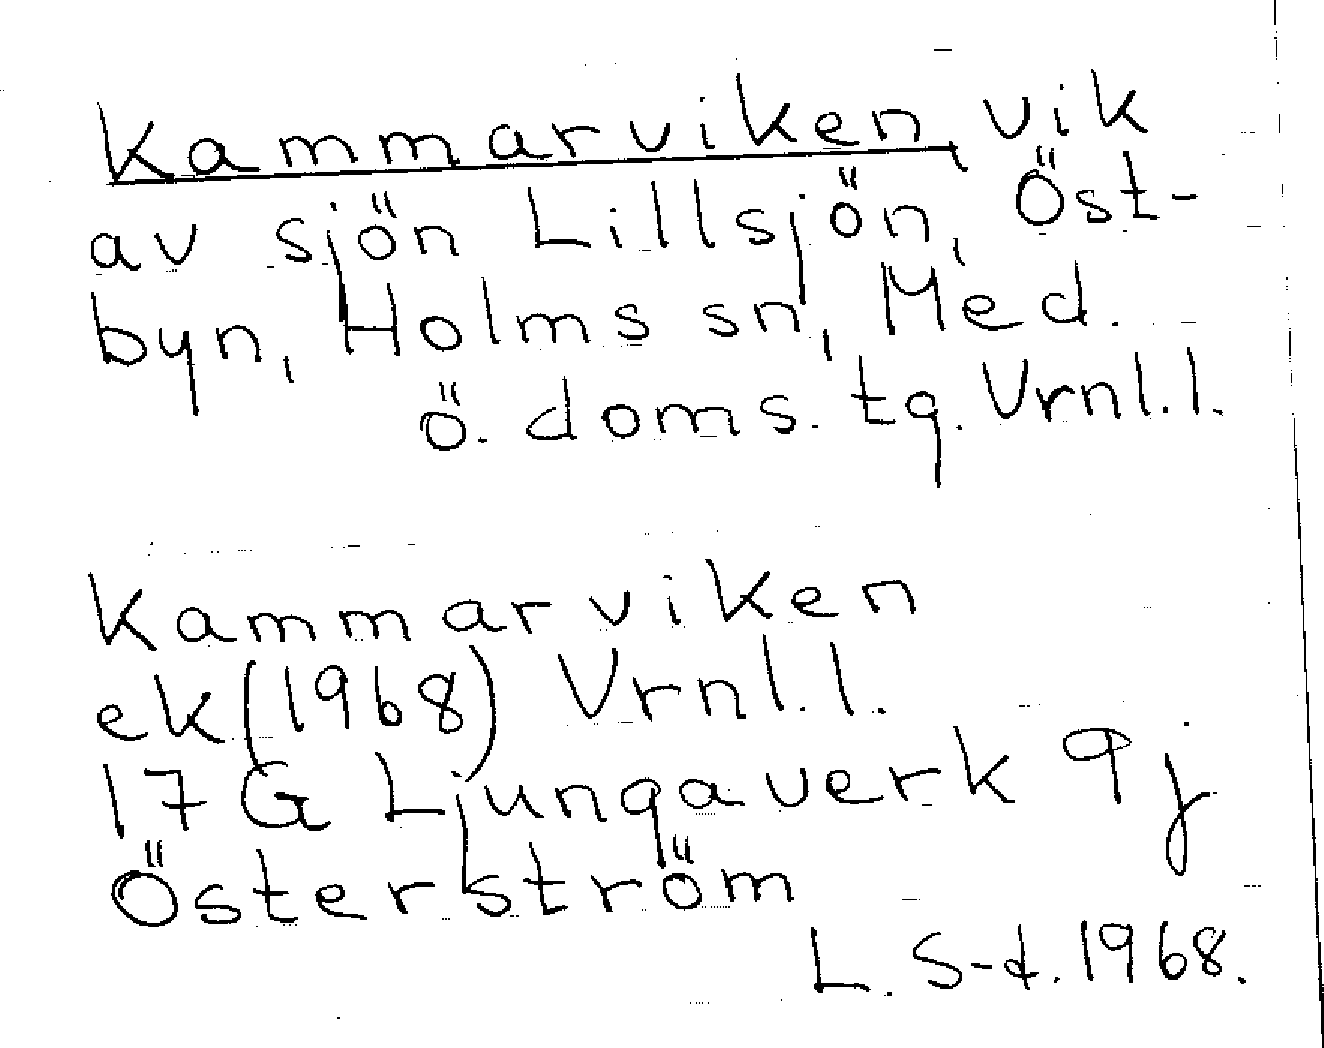 Kammarviken, vik
av sjön Lillsjön, Öst-
byn, Holms sn, Med.
ö. doms. tg. Vrnl.l.
Kammarviken
ek (1968) Vrnl.l.
17 G Ljungaverk 9 j
Österström
L. S-d. 1968.